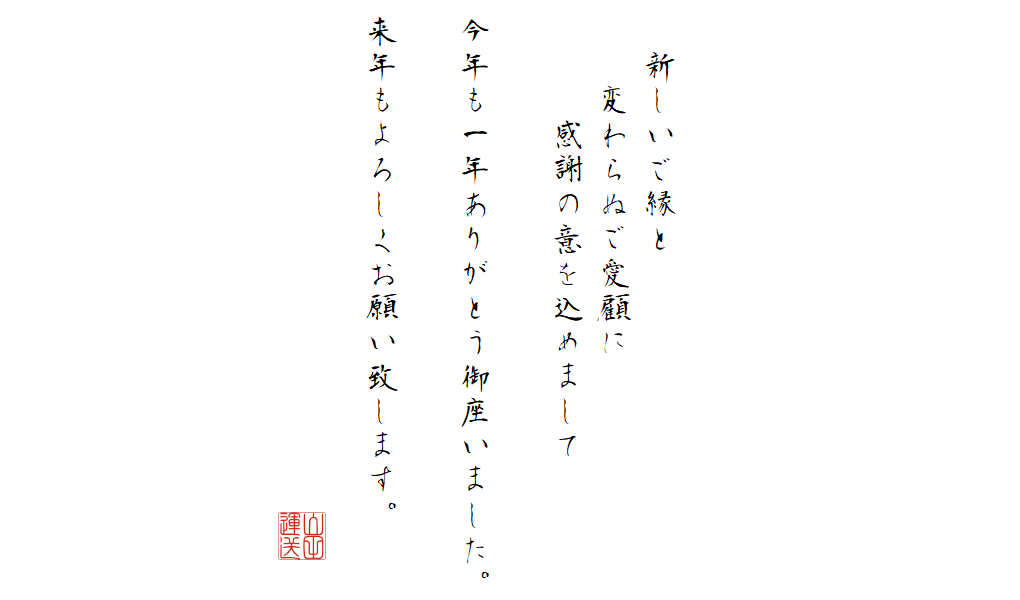 新しいご縁と
変わらぬご愛顧に
感謝の意を込めまして
今年も一年ありがとう御座いました。
来年もよろしくお願い致します。
運送